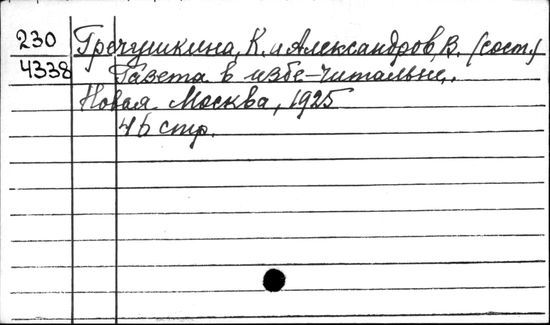 230 Гречушкина, К. и Александров, В. (сост.)
4338 Газета в избе-читальне.
Новая Москва, 1925
46 стр.